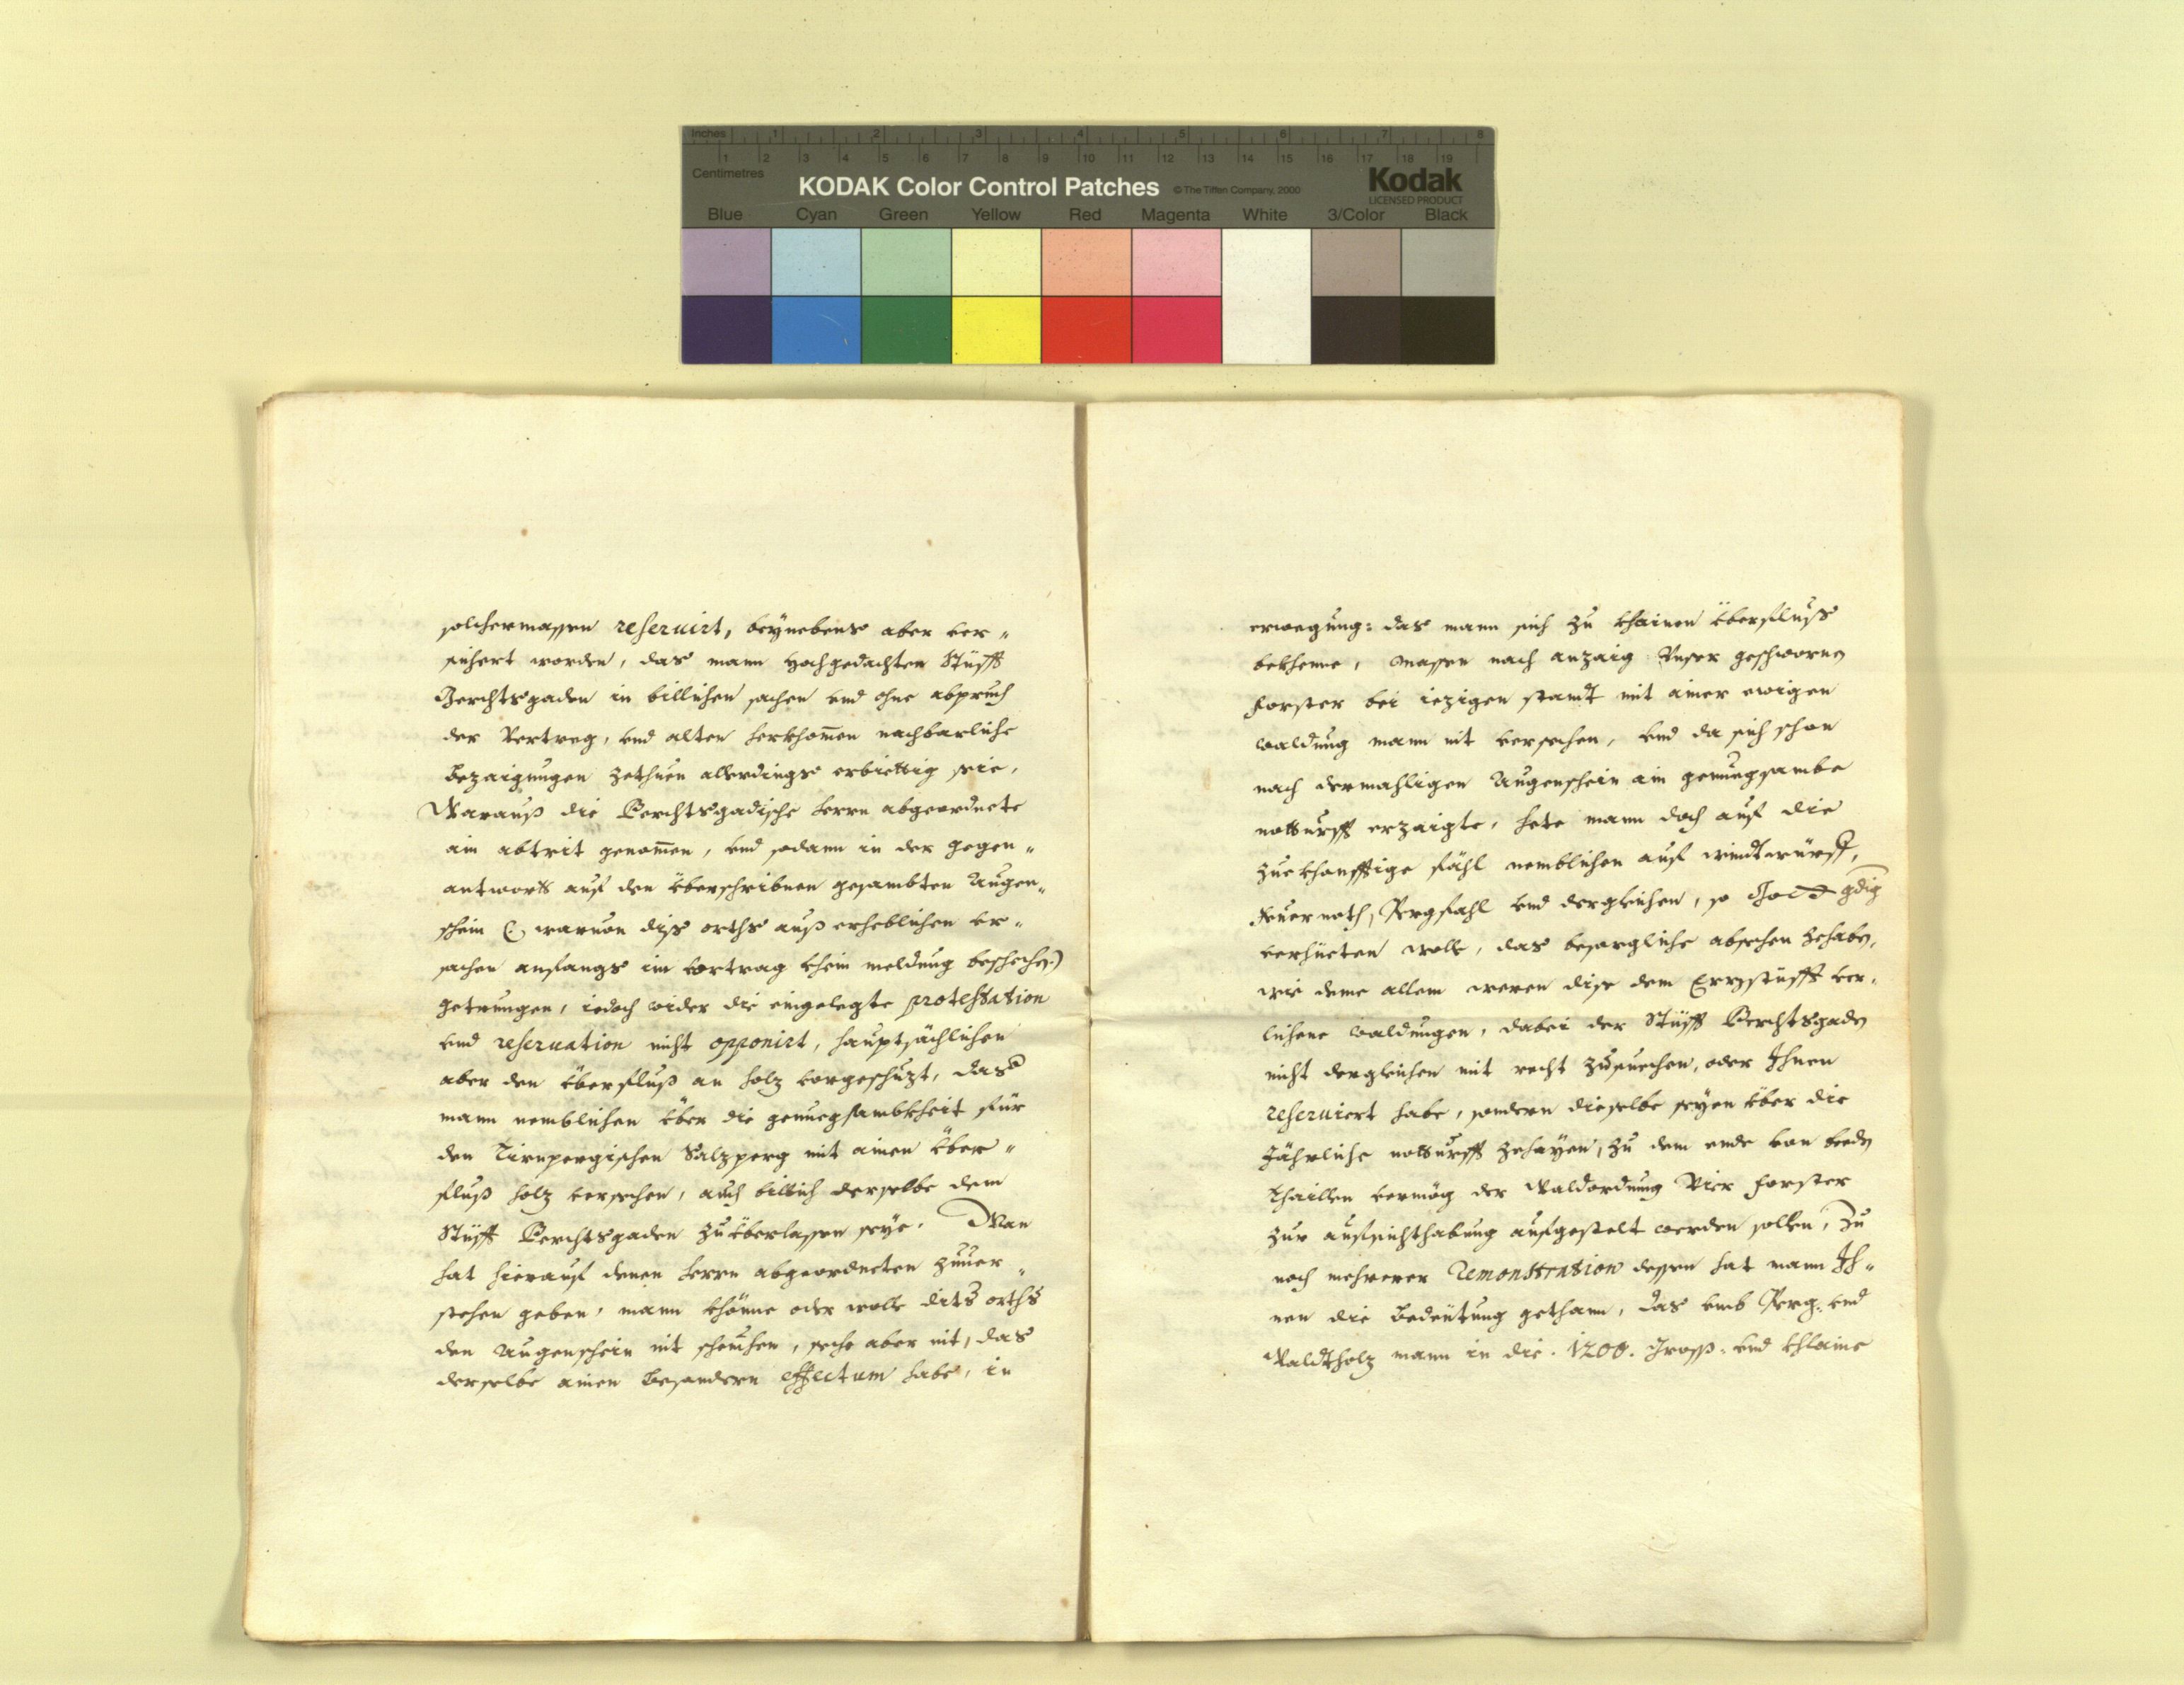 Inches 1 2 3 4 5 6 7 8
1 2 3 4 5 6 7 8 9 10 11 12 13 14 15 16 17 18 19
Centimetres
KODAK Color Control Patches © The Tiffen Company, 2000 Kodak
LICENSED PRODUCT
Blue Cyan Green Yellow Red Magenta White 3/Color Black
solchermassen reseruirt, beÿnebens aber ver„
sichert worden, das mann hochgedachten Stüfft
Berchtsgaden in billichen sachen vnd ohne abpruch
der Vertreg, vnd alten herkhom̄en nachbarliche
bezaigungen zethuen allerdings erbiettig seie,
Warauß die Berchtsgadische herrn abgeordnete
ain abtrit genom̄en, vnd sodann in der gegen„
antwortt auf den überschribnen gesambten Augen„
schein (: waruon diss orths auß erheblichen vr„
sachen anfangs im vortrag khein meldung beschechen:)
getrungen, iedoch wider die eingelegte protestation
vnd reseruation nicht opponirt, hauptsächlichen
aber den überfluß an holz vorgeschuzt, das
mann nemblichen über die genuegsambkheit für
den Tirnpergischen Salzperg mit ainen über„
fluß holz versechen, auch billich derselbe dem
Stüfft Berchtsgaden zu überlassen seÿe. Man
hat hierauf denen herrn abgeordneten zuuer„
stehen geben, mann khönne oder wolle dits orths
den Augenschein nit scheuhen, seche aber nit, das
derselbe ainen besondern effectum habe, in
erwegung: das mann sich zu khainen überfluss
bekhenne, massen nach anzaig Vnser geschwornen
forster bei iezigen standt mit ainer ewigen
waldung mann nit versechen, vnd da sich schon
nach dermahligen Augenschein ain genuegsambe
notturfft erzaigte, hete mann doch auf die
zuekhonfftige fähl nemblichen auf windtwürff,
feuersnoth, Pergfahl vnd dergleichen, so Gott gdig
verhüeten wolle, das besorgliche absechen zehaben,
wie deme allem weren dise dem Erzstüfft ver„
lichene waldungen, dabei der Stüfft Berchtsgaden
nicht dergleichen mit recht zusuechen, oder Ihnen
reseruiert habe, sondern dieselbe seÿen über die
Jährliche notturfft zehaÿen, zu dem ende von beeden
thaillen vermög der Waldordnung Vier forster
zur aufsichthabung aufgestelt werden sollen, Zu
noch mehrerer remonstration dessen hat mann Ih„
nen die bedeutung gethann, das vmb Perg- vnd
Waldtholz mann in die 1200. gross- vnd khlaine